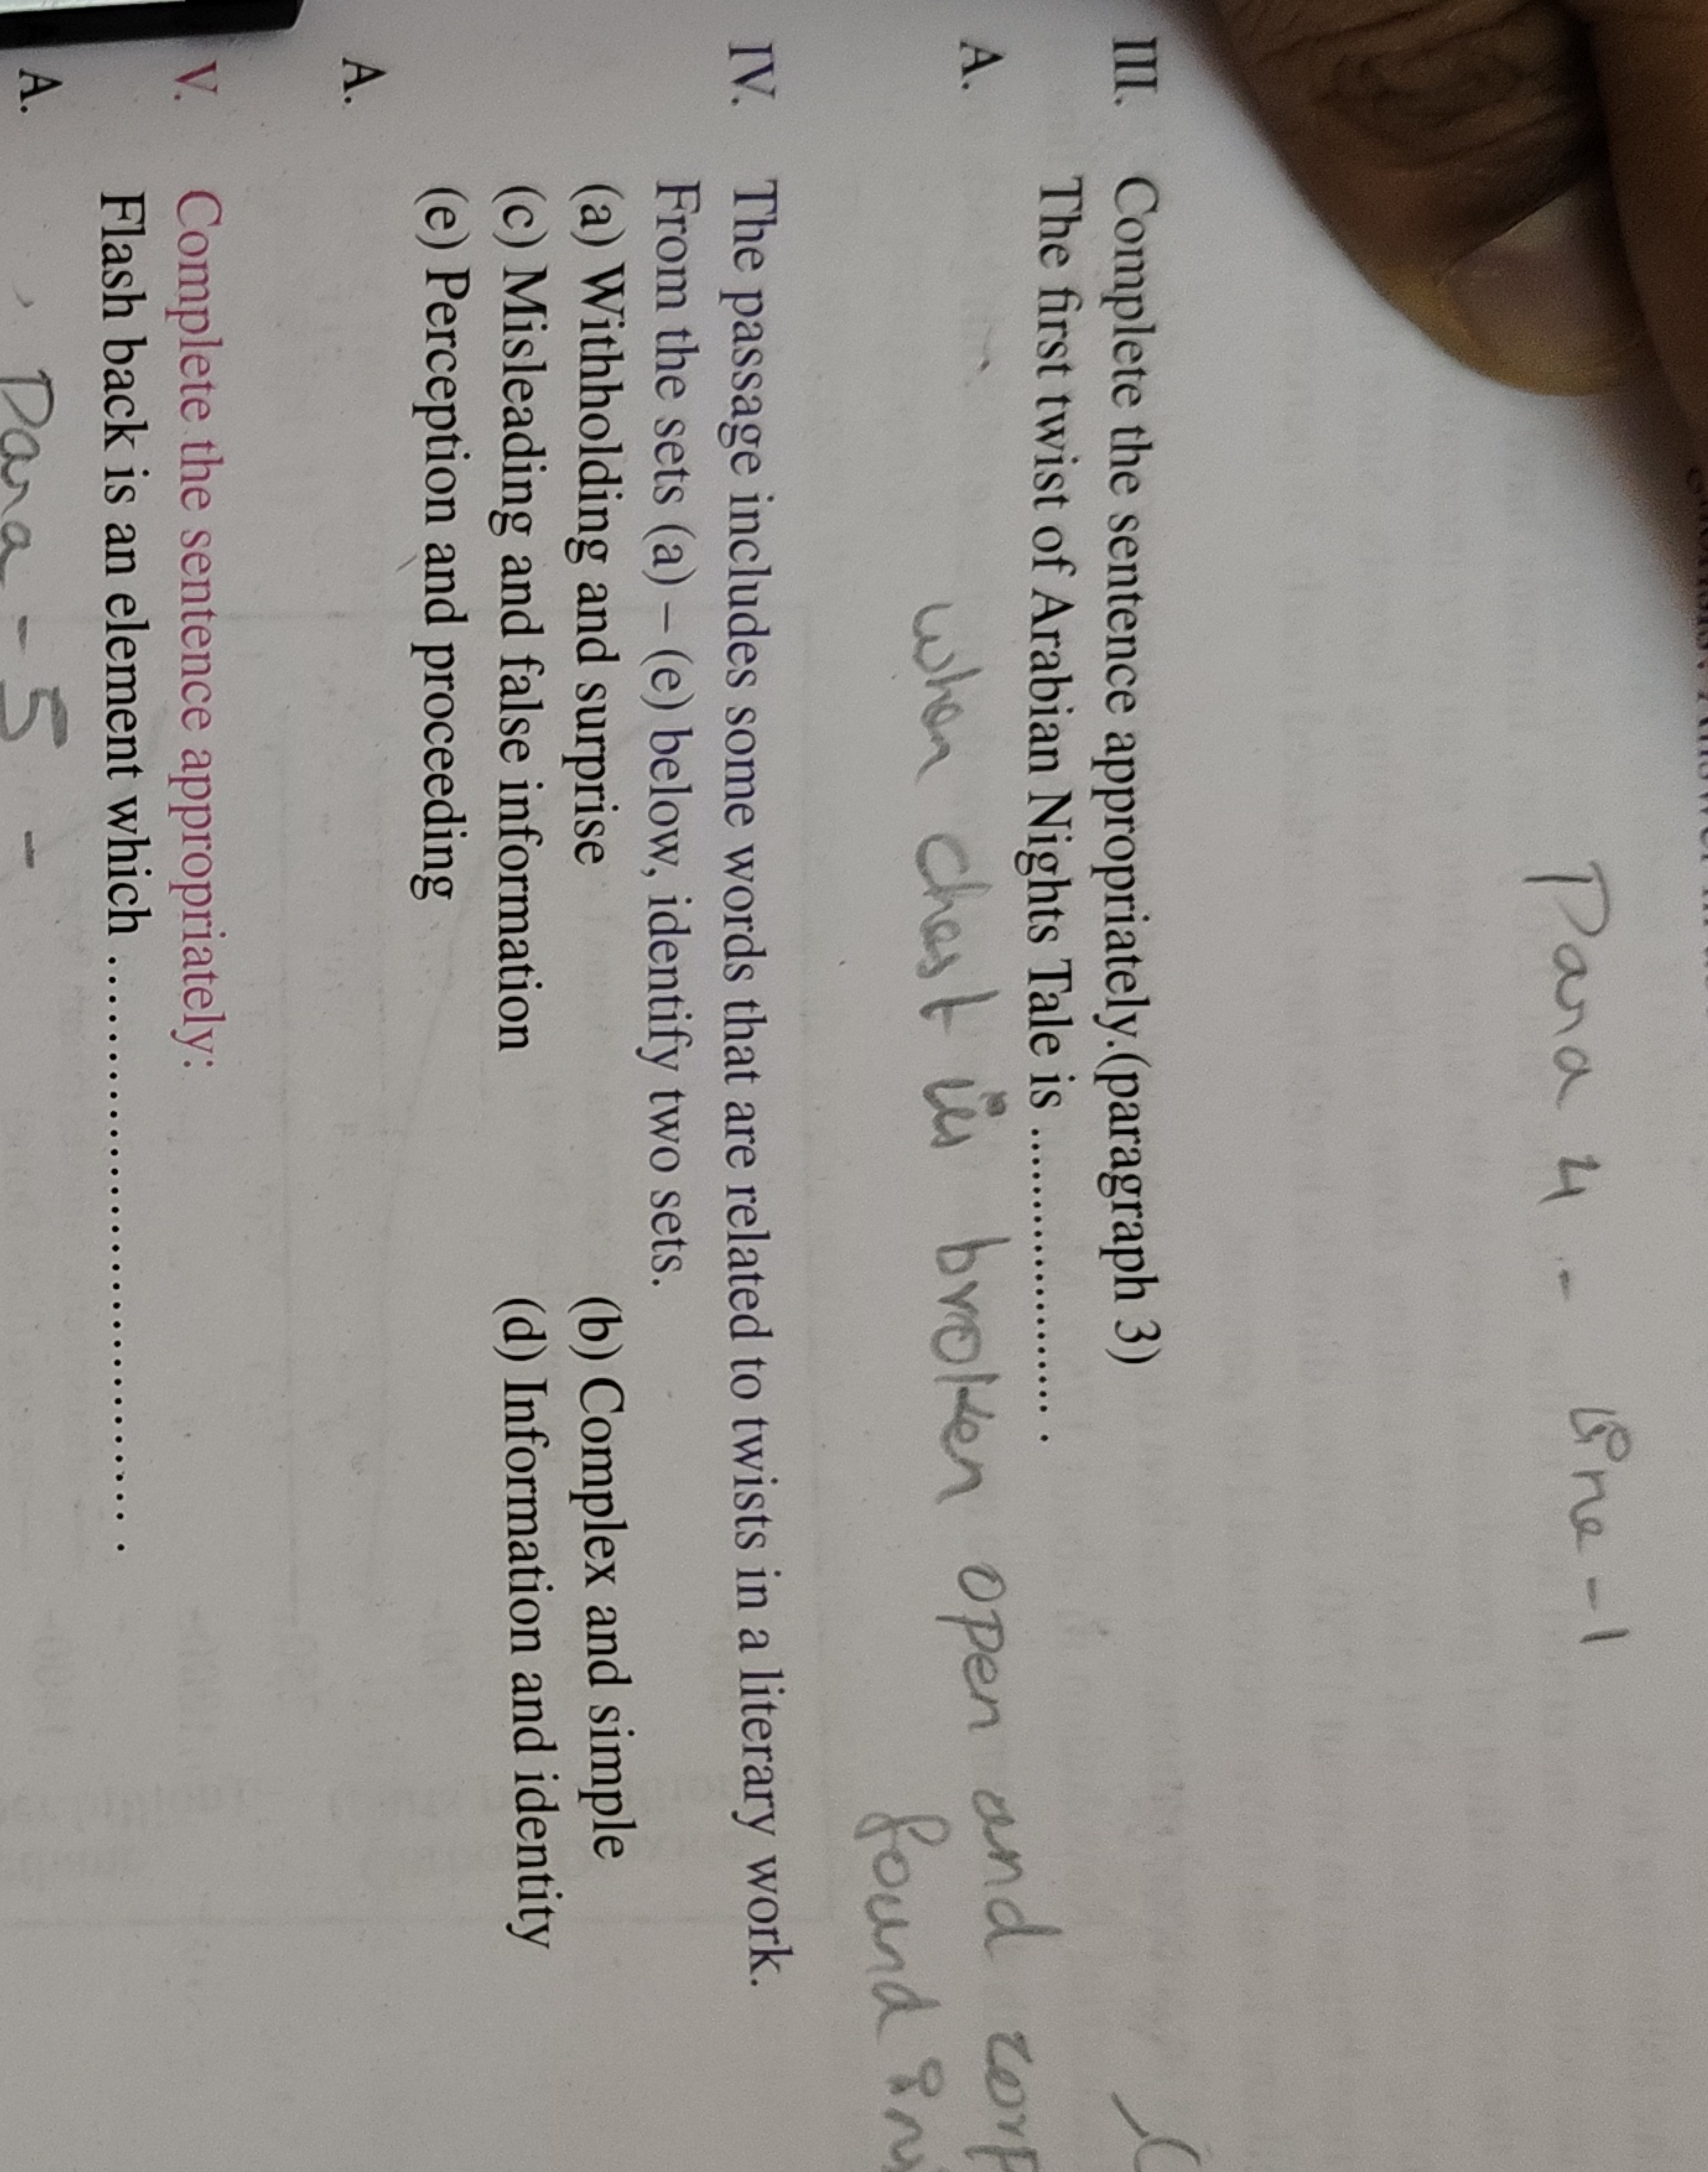 Para 4 - line - 1
III. Complete the sentence appropriately.(paragraph 3)
The first twist of Arabian Nights Tale is ...................... .
A. when chest is broken open and
found
IV. The passage includes some words that are related to twists in a literary work.
From the sets (a) – (e) below, identify two sets.
(a) Withholding and surprise (b) Complex and simple
(c) Misleading and false information (d) Information and identity
(e) Perception and proceeding
A.
V. Complete the sentence appropriately:
Flash back is an element which ........................................ .
A. Para - 5 -